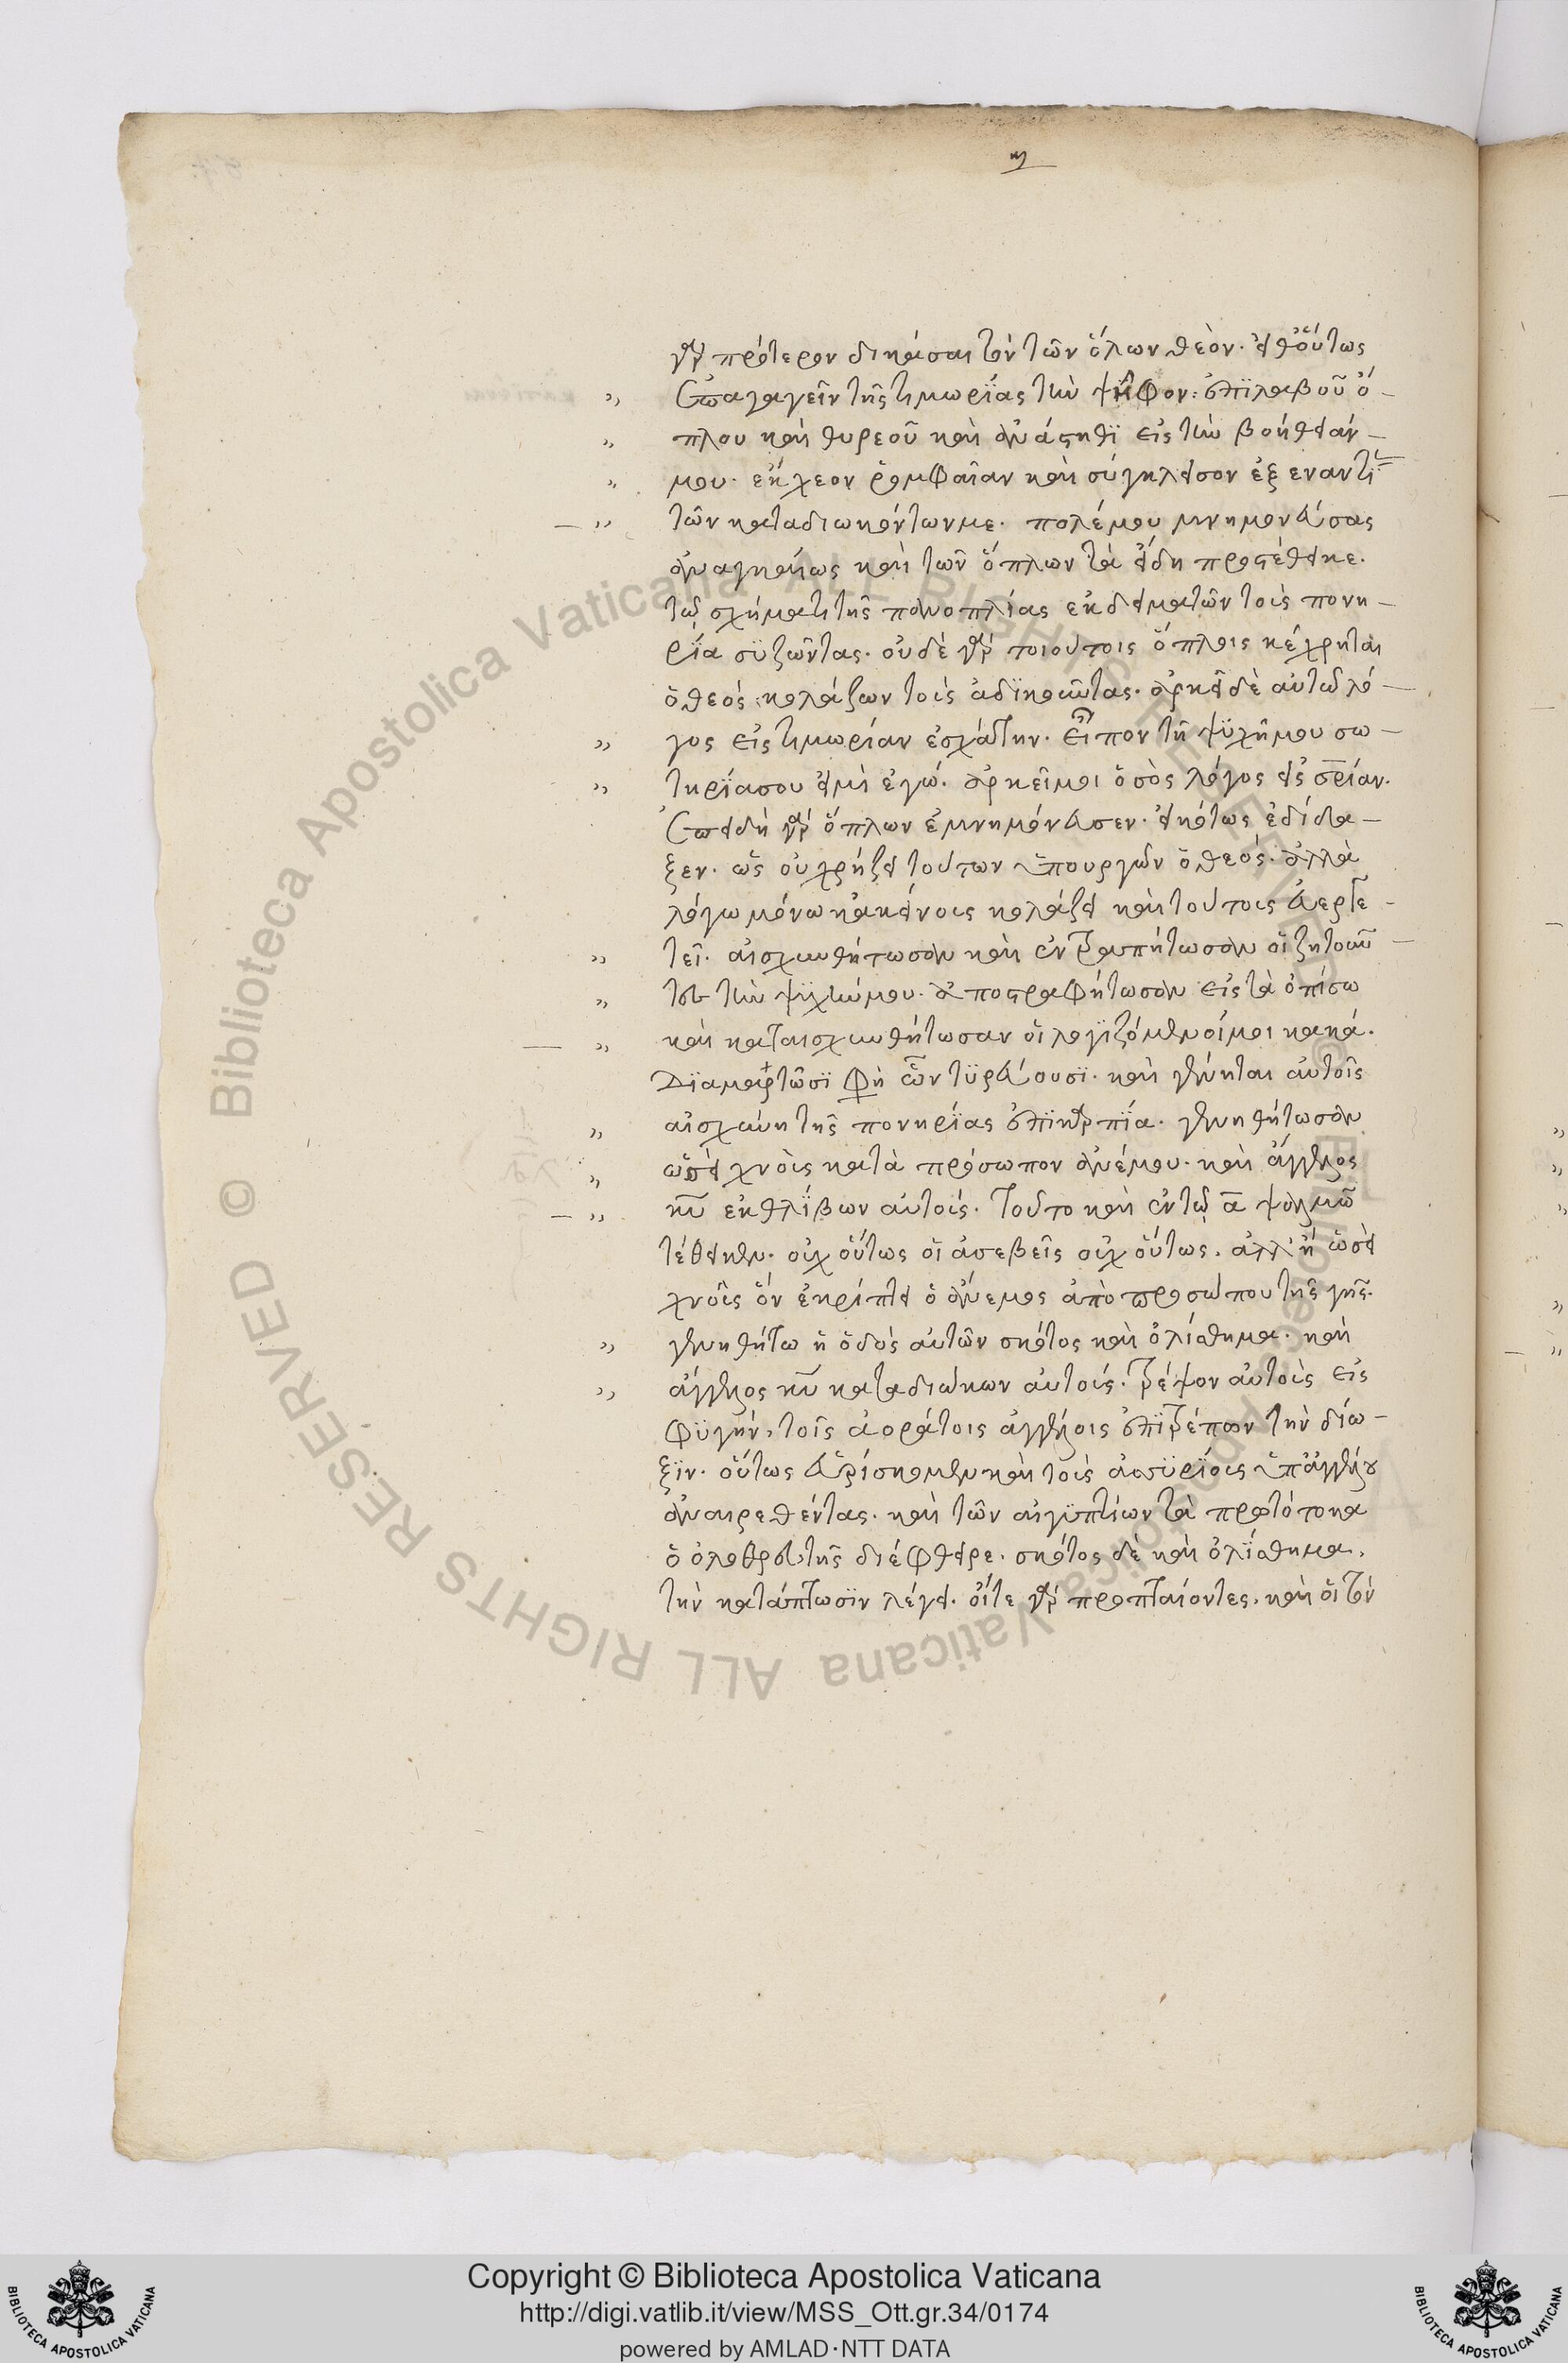 γὰρ πρότερον δικάσαι τὸν τῶν ὅλων θεὸν. εἶθ οὕτως
ἐπαγαγεῖν τῆς τιμωρίας τὴν ψῆφον: ἐπιλαβοῦ ὅ-
πλου καὶ θυρεοῦ καὶ ἀνάστηθι εἰς τὴν βοήθειάν-
μου. ἔκχεον ῥομφαίαν καὶ σύγκλεισον ἐξ εναντί
τῶν καταδιωκόντων με. πολέμου μνημονεύσας
ἀναγκαίως καὶ τῶν ὅπλων τὰ εἴδη προστέθεικε.
τῷ σχήματι τῆς πανοπλίας ἐκδειματῶν τοὺς πονη-
ρία συζῶντας. οὐδὲ γὰρ τοιούτοις ὅπλοις κέχρηται
ὁ θεός κολάζων τοὺς ἀδικοῦντας. ἀρκεῖ δὲ αὐτῶ λό-
γος εἰς τιμωρίαν ἐσχάτην. εἶπον τῆ ψυχῆ μου σω-
τηρία σου εἰμὶ ἐγώ. ἀρκεῖ μοι ὁ σὸς λόγος εἰς σρίαν.
ἐπειδὴ γὰρ ὅπλων ἐμνημόνευσεν. εἰκότως ἐδίδα-
ξεν. ὡς οὐ χρήζει τούτων ὑπουργῶν ὁ θεός. ἀλλὰ
λόγω μόνω κἀκείνοις κολάζει καὶ τούτοις εὐεργε-
τεῖ. αἰσχυνθήτωσαν καὶ ἐντραπήτωσαν οἱ ζητοῦν-
τες τὴν ψυχήν μου. ἀποστραφήτωσαν εἰς τὰ ὀπίσω
καὶ καταισχυνθήτωσαν οἱ λογιζόμενοί μοι κακά.
Διαμαρτῶσί φη ὧν τυρεύουσι. καὶ γένηται αὐτοῖς
αἰσχύνη τῆς πονηρίας ἐπικαρπία. γενηθήτωσαν
ὡσεὶ χνοὺς κατὰ πρόσωπον ἀνέμου. καὶ ἄγγελος
κυ ἐκθλίβων αὐτούς. Τοῦτο καὶ ἐν τῷ α ψαλμῶ
τέθεικεν. οὐχ οὕτως οἱ ἀσεβεῖς οὐχ οὕτως. ἀλλ ἢ ὡσεὶ
χνοῦς ὅν ἐκρίπτει ὁ ἄνεμος ἀπὸ προσώπου τῆς γῆς.
γενηθήτω ἡ ὁδὸς αὐτῶν σκότος καὶ ὀλίσθημα. καὶ
ἄγγελος κυ καταδιώκων αὐτούς. Τρέψον αὐτοὺς εἰς
φυγήν, τοῖς ἀοράτοις ἀγγέλοις ἐπιτρέπων τὴν δίω-
ξιν. οὕτως εὑρίσκομεν καὶ τοὺς ἀσσυρίους ὑπ ἀγγέλου
ἀναιρεθέντας. καὶ τῶν αἰγυπτίων τὰ πρωτότοκα
ὁ ὀλοθρευτὴς διέφθειρε. σκότος δὲ καὶ ὀλίσθημα,
τὴν κατάπτωσιν λέγει. οἵτε γὰρ προπταίοντες, καὶ οἱ τὸν
Copyright © Biblioteca Apostolica Vaticana
http://digi.vatlib.it/view/MSS_Ott.gr.34/0174
powered by AMLAD·NTT DATA